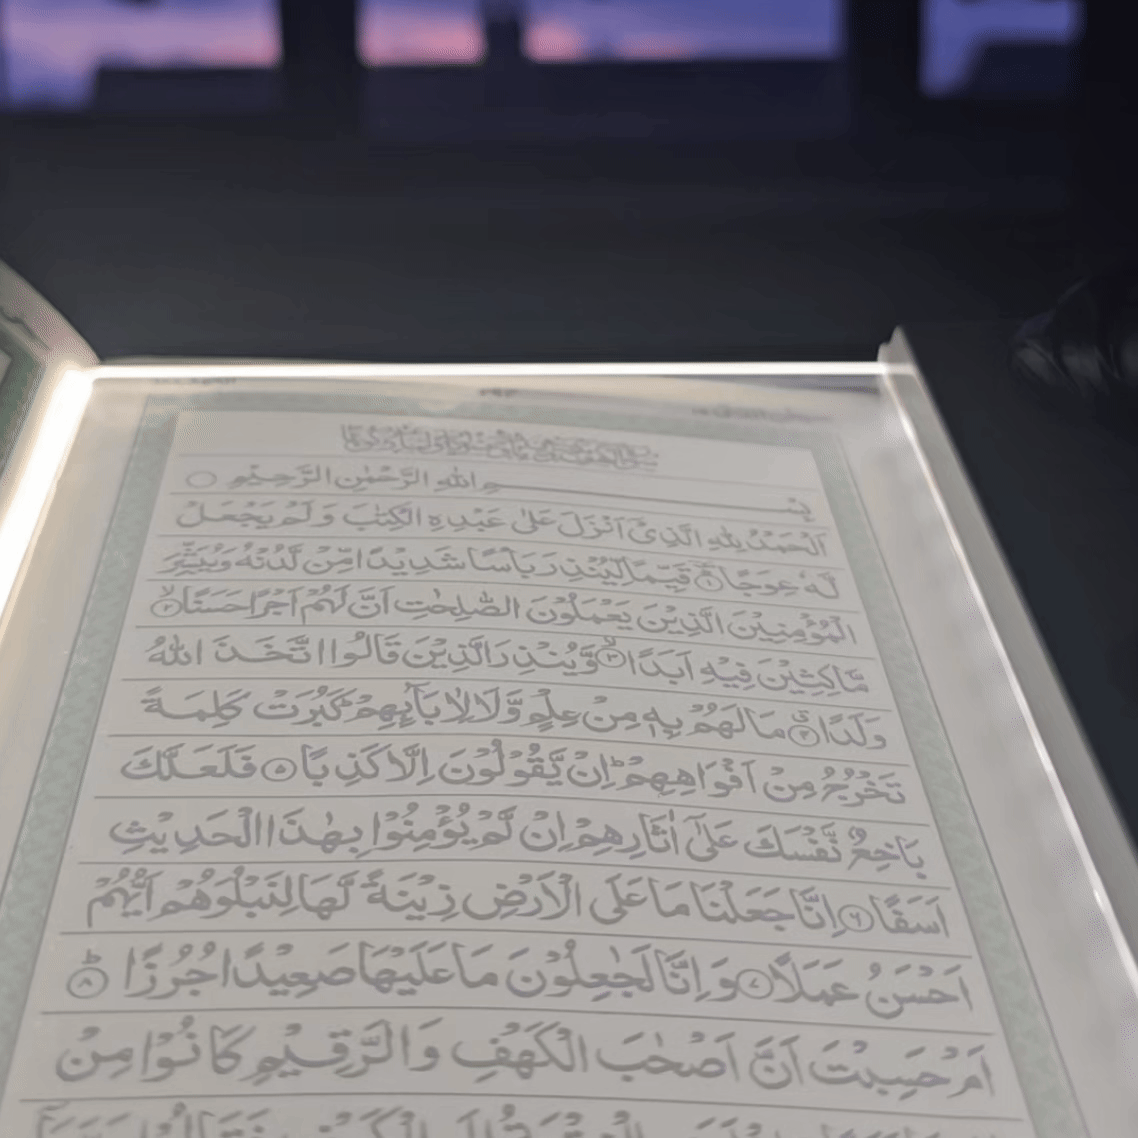 بِسْــــــــمِ اللهِ الرَّحْمٰنِ الرَّحِيْمِ ○
اَلْحَمْدُ لِلّٰهِ الَّذِیْۤ اَنْزَلَ عَلٰی عَبْدِهِ الْكِتٰبَ وَ لَمْ یَجْعَلْ
لَّهٗ عِوَجًا ؕ۱ قَیِّمًا لِّیُنْذِرَ بَاْسًا شَدِیْدًا مِّنْ لَّدُنْهُ وَ یُبَشِّرَ
الْمُؤْمِنِیْنَ الَّذِیْنَ یَعْمَلُوْنَ الصّٰلِحٰتِ اَنَّ لَهُمْ اَجْرًا حَسَنًا ۙ۲
مَّاكِثِیْنَ فِیْهِ اَبَدًا ۙ۳ وَّ یُنْذِرَ الَّذِیْنَ قَالُوا اتَّخَذَ اللهُ
وَلَدًا ۗ۴ مَا لَهُمْ بِهٖ مِنْ عِلْمٍ وَّ لَا لِاٰبَآئِهِمْ ؕ كَبُرَتْ كَلِمَةً
تَخْرُجُ مِنْ اَفْوَاهِهِمْ ؕ اِنْ یَّقُوْلُوْنَ اِلَّا كَذِبًا ۵ فَلَعَلَّكَ
بَاخِعٌ نَّفْسَكَ عَلٰۤی اٰثَارِهِمْ اِنْ لَّمْ یُؤْمِنُوْا بِهٰذَا الْحَدِیْثِ
اَسَفًا ۶ اِنَّا جَعَلْنَا مَا عَلَی الْاَرْضِ زِیْنَةً لَّهَا لِنَبْلُوَهُمْ اَیُّهُمْ
اَحْسَنُ عَمَلًا ۷ وَ اِنَّا لَجٰعِلُوْنَ مَا عَلَیْهَا صَعِیْدًا جُرُزًا ؕ۸
اَمْ حَسِبْتَ اَنَّ اَصْحٰبَ الْكَهْفِ وَ الرَّقِیْمِ كَانُوْا مِنْ